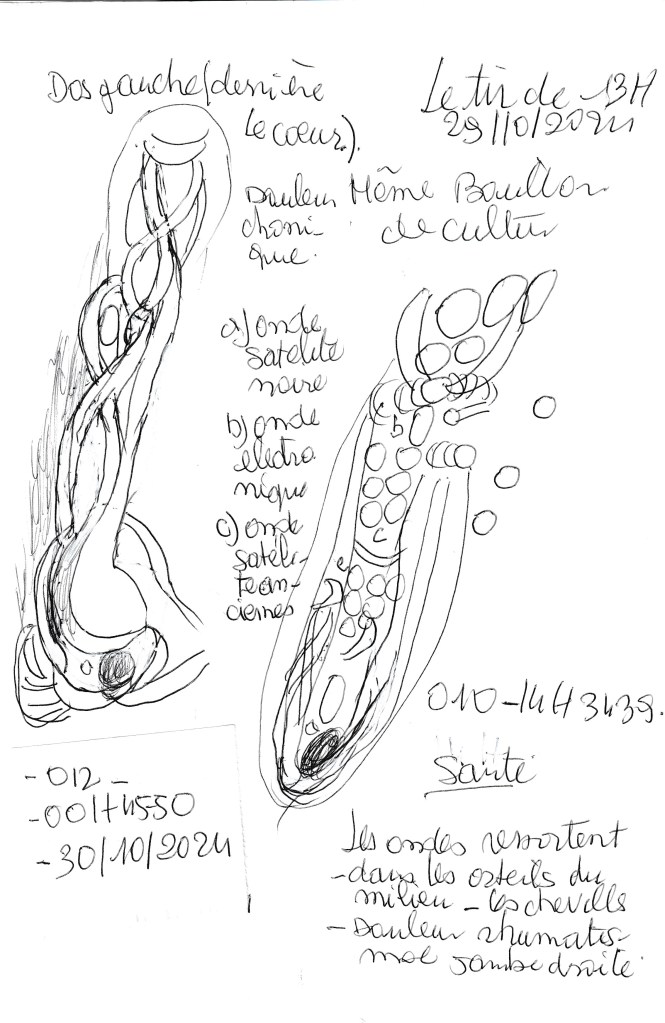 Dos gauche (derrière
le coeur).
Le tir de 13H
29/10/2024
Douleur
chroni-
que.
Même Bouillon
de cultur
a) onde
satelite
noire
b) onde
electro
nique
c) onde
satéli-
te an-
ciennes
b
c
010-14H3439.
Santé
-012-
-00H4550
-30/10/2024
Les ondes ressortent
-dans les orteils du
milieu - les chevilles
-Douleur rhumatis-
male jambe droite